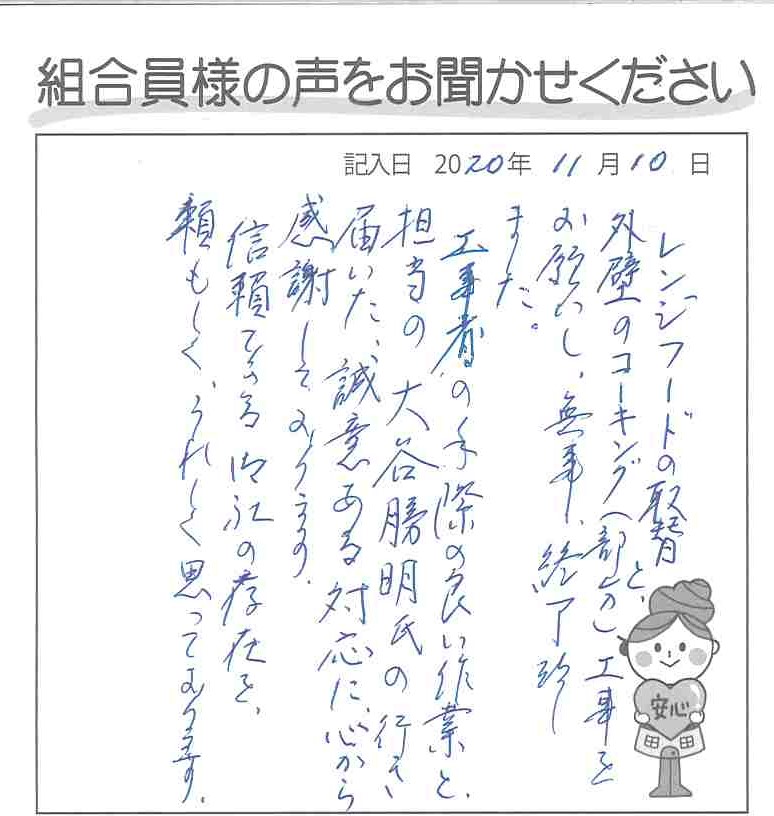 組合員様の声をお聞かせください
記入日 2020年 11月10日
レンジフードの取替と、
外壁のコーキング(部分)工事を
お願いし、無事、終了致し
ました。
工事者の手際の良い作業と、
担当の大谷勝明氏の行き
届いた、誠意ある対応に、心から
感謝しております。
信頼できる御社の存在を、
頼もしく、うれしく思っております。
安心